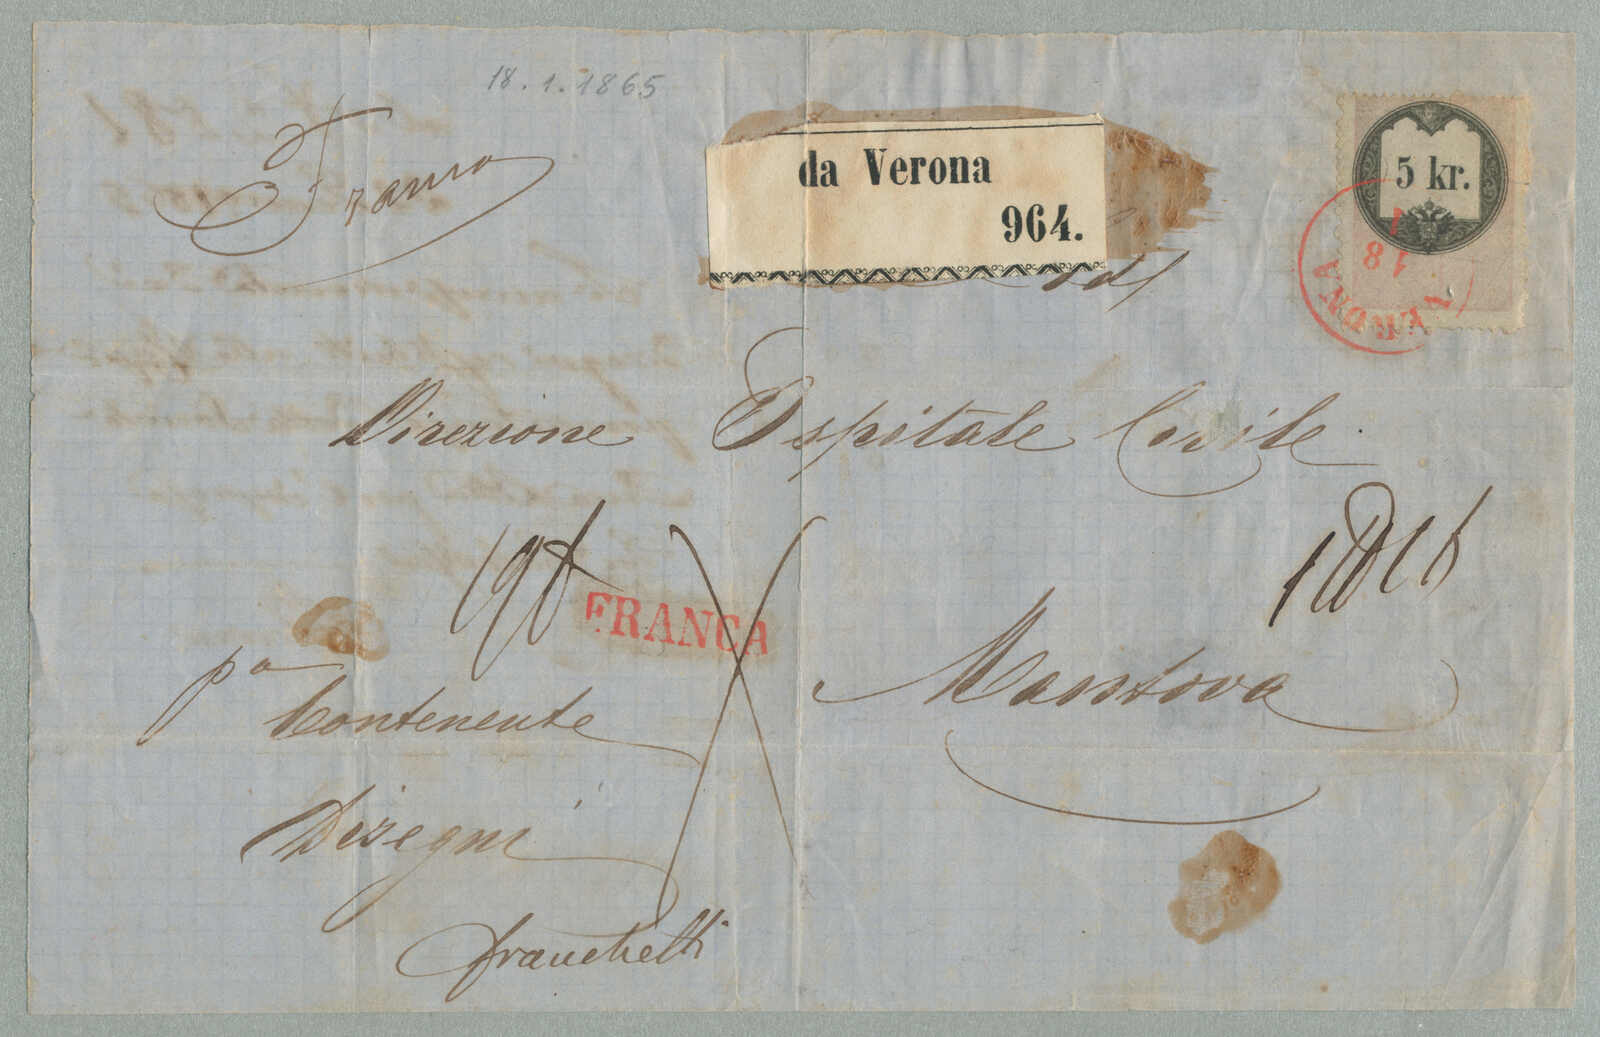 18.1.1865
Franco
da Verona
964.
5 kr.
VERONA
18
1
Direzione Ospitale Civile
FRANCA
Mantova
pa
Contenente
Disegni
Franchetti